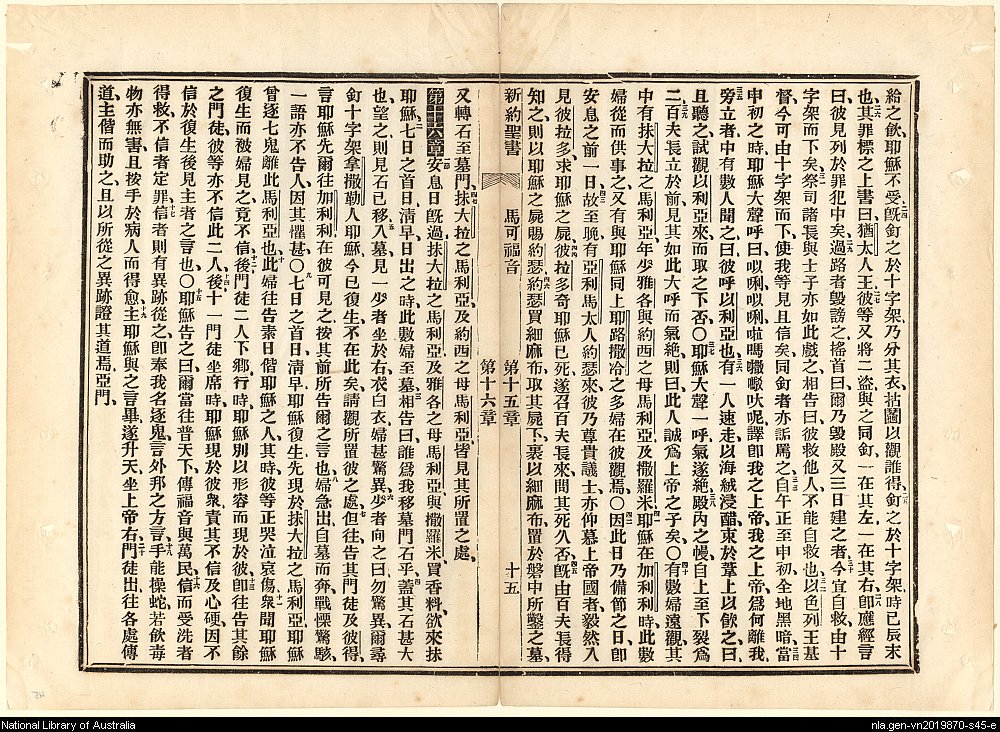 給之飲、耶穌不受、旣釘之於十字架、乃分其衣、拈鬮以觀誰得、釘之於十字架時已辰末
也、其罪標之上書曰、猶太人主、彼等又將二盜與之同釘、一在其左、一在其右、卽應經言
曰、彼見列於罪犯中矣、過路者毀謗之、搖首曰、爾乃毀殿又三日建之者、今宜自救、由十
字架而下矣、祭司諸長與士子、亦如此戲之、相告曰、彼救他人、不能自救也、以色列王基
督、今可由十字架而下、使我等見且信矣、同釘者亦詬罵之、自午正至申初、全地黑暗、當
申初之時、耶穌大聲呼曰、以唎以唎啦嗎撒呔呢、譯卽我之上帝、我之上帝、爲何離我、
旁立者中有數人聞之曰、彼呼以利亞也、有一人速走、以海絨浸醋、束於葦上以飮之、曰、
且聽之、試觀以利亞來而取之下否〇耶穌大聲一呼、氣遂絕、殿內之幔、自上至下裂爲
二、百夫長立於前、見其如此大呼而氣絕、則曰、此人誠爲上帝之子矣〇有數婦遠觀、其
中有抹大拉之馬利亞、年少雅各與約西之母馬利亞、及撒羅米、耶穌在加利利時、此數
婦從而供事之、又有與耶穌同上耶路撒冷之多婦在彼觀焉〇因此日乃備節之日、卽
安息之前一日、故至晚、有亞利馬太人約瑟來、彼乃尊貴議士、亦仰慕上帝國者、毅然入
見彼拉多、求耶穌之屍、彼拉多奇耶穌已死、遂召百夫長來、問其死久否、旣由百夫長得
知之、則以耶穌之屍賜約瑟、約瑟買細麻布、取其屍下、裹以細麻布、置於磐中所鑿之墓、
新約聖書 馬可福音 第十五章 第十六章 十五
又轉石至墓門、抹大拉之馬利亞及約西之母馬利亞、皆見其所置之處、
第十六章 安息日旣過、抹大拉之馬利亞、及雅各之母馬利亞與撒羅米、買香料、欲來抹
耶穌、七日之首日、淸早日出之時、此數婦至墓、相告曰、誰爲我移墓門石乎、蓋其石甚大
也、望之、則見石已移、入墓、見一少者坐於右、衣白衣、婦甚驚異、少者向之曰、勿驚異、爾尋
釘十字架拿撒勒人耶穌、今已復生、不在此矣、請觀所置彼之處、但往告其門徒及彼得、
言耶穌先爾往加利利、在彼可見之、按其前所告爾之言也、婦急出、自墓而奔、戰慄驚駭、
一語亦不告人、因其懼甚〇七日之首日淸早、耶穌復生、先現於抹大拉之馬利亞、耶穌
曾逐七鬼離此馬利亞也、此婦往告素日偕耶穌之人、其時彼等正哭泣哀傷、衆聞耶穌
復生而被婦見之、竟不信、後門徒二人下鄕行時、耶穌別以形容而現於彼、卽往告其餘
之門徒、彼等亦不信此二人、後十一門徒坐席時、耶穌現於彼衆、責其不信及心硬、因不
信於復生後見主者之言也〇耶穌告之曰、爾當往普天下、傳福音與萬民、信而受洗者
得救、不信者定罪、信者則有異跡從之、卽奉我名逐鬼、言外邦之方言、手能操蛇、若飲毒
物亦無害、且按手於病人而得愈、主耶穌與之言畢、遂升天、坐上帝右、門徒出、往各處傳
道、主偕而助之、且以所從之異跡證其道焉、亞門、
National Library of Australia
nla.gen-vn2019870-s45-e